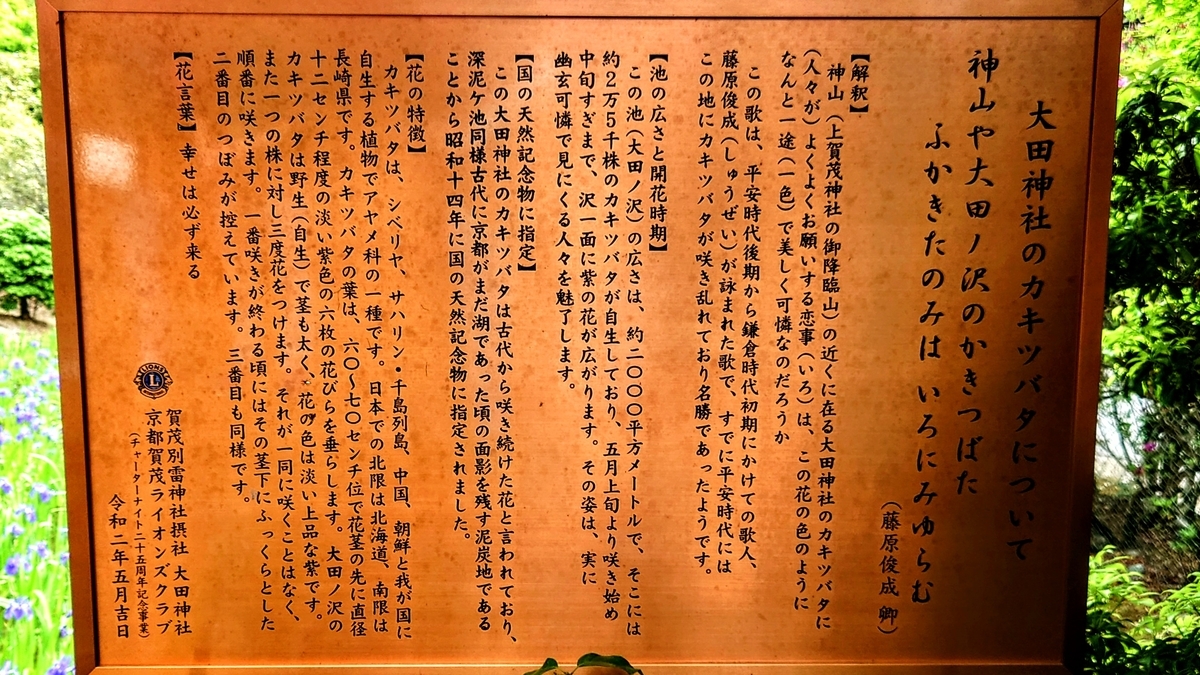 大田神社のカキツバタについて
神山や大田ノ沢のかきつばた
ふかきたのみは いろにみゆらむ
(藤原俊成 卿)
【解釈】
神山(上賀茂神社の御降臨山)の近くに在る大田神社のカキツバタに
(人々が)よくよくお願いする恋事(いろ)は、この花の色のように
なんと一途(一色)で美しく可憐なのだろうか
この歌は、平安時代後期から鎌倉時代初期にかけての歌人、
藤原俊成(しゅうぜい)が詠まれた歌で、すでに平安時代には
この地にカキツバタが咲き乱れており名勝であったようです。
【池の広さと開花時期】
この池(大田ノ沢)の広さは、約二〇〇〇平方メートルで、そこには
約2万5千株のカキツバタが自生しており、五月上旬より咲き始め
中旬すぎまで、沢一面に紫の花が広がります。その姿は、実に
幽玄可憐で見にくる人々を魅了します。
【国の天然記念物に指定】
この大田神社のカキツバタは古代から咲き続けた花と言われており、
深泥ケ池同様古代に京都がまだ湖であった頃の面影を残す泥炭地である
ことから昭和十四年に国の天然記念物に指定されました。
【花の特徴】
カキツバタは、シベリヤ、サハリン・千島列島、中国、朝鮮と我が国に
自生する植物でアヤメ科の一種です。日本での北限は北海道、南限は
長崎県です。カキツバタの葉は、六〇~七〇センチ位で花茎の先に直径
十二センチ程度の淡い紫色の六枚の花びらを垂らします。大田ノ沢の
カキツバタは野生(自生)で茎も太く、花の色は淡い上品な紫です。
また一つの株に対し三度花をつけます。それが一同に咲くことはなく、
順番に咲きます。一番咲きが終わる頃にはその茎下にふっくらとした
二番目のつぼみが控えています。三番目も同様です。
【花言葉】 幸せは必ず来る
LIONS
L
賀茂別雷神社摂社 大田神社
京都賀茂ライオンズクラブ
(チャーターナイト二十五周年記念事業)
令和二年五月吉日